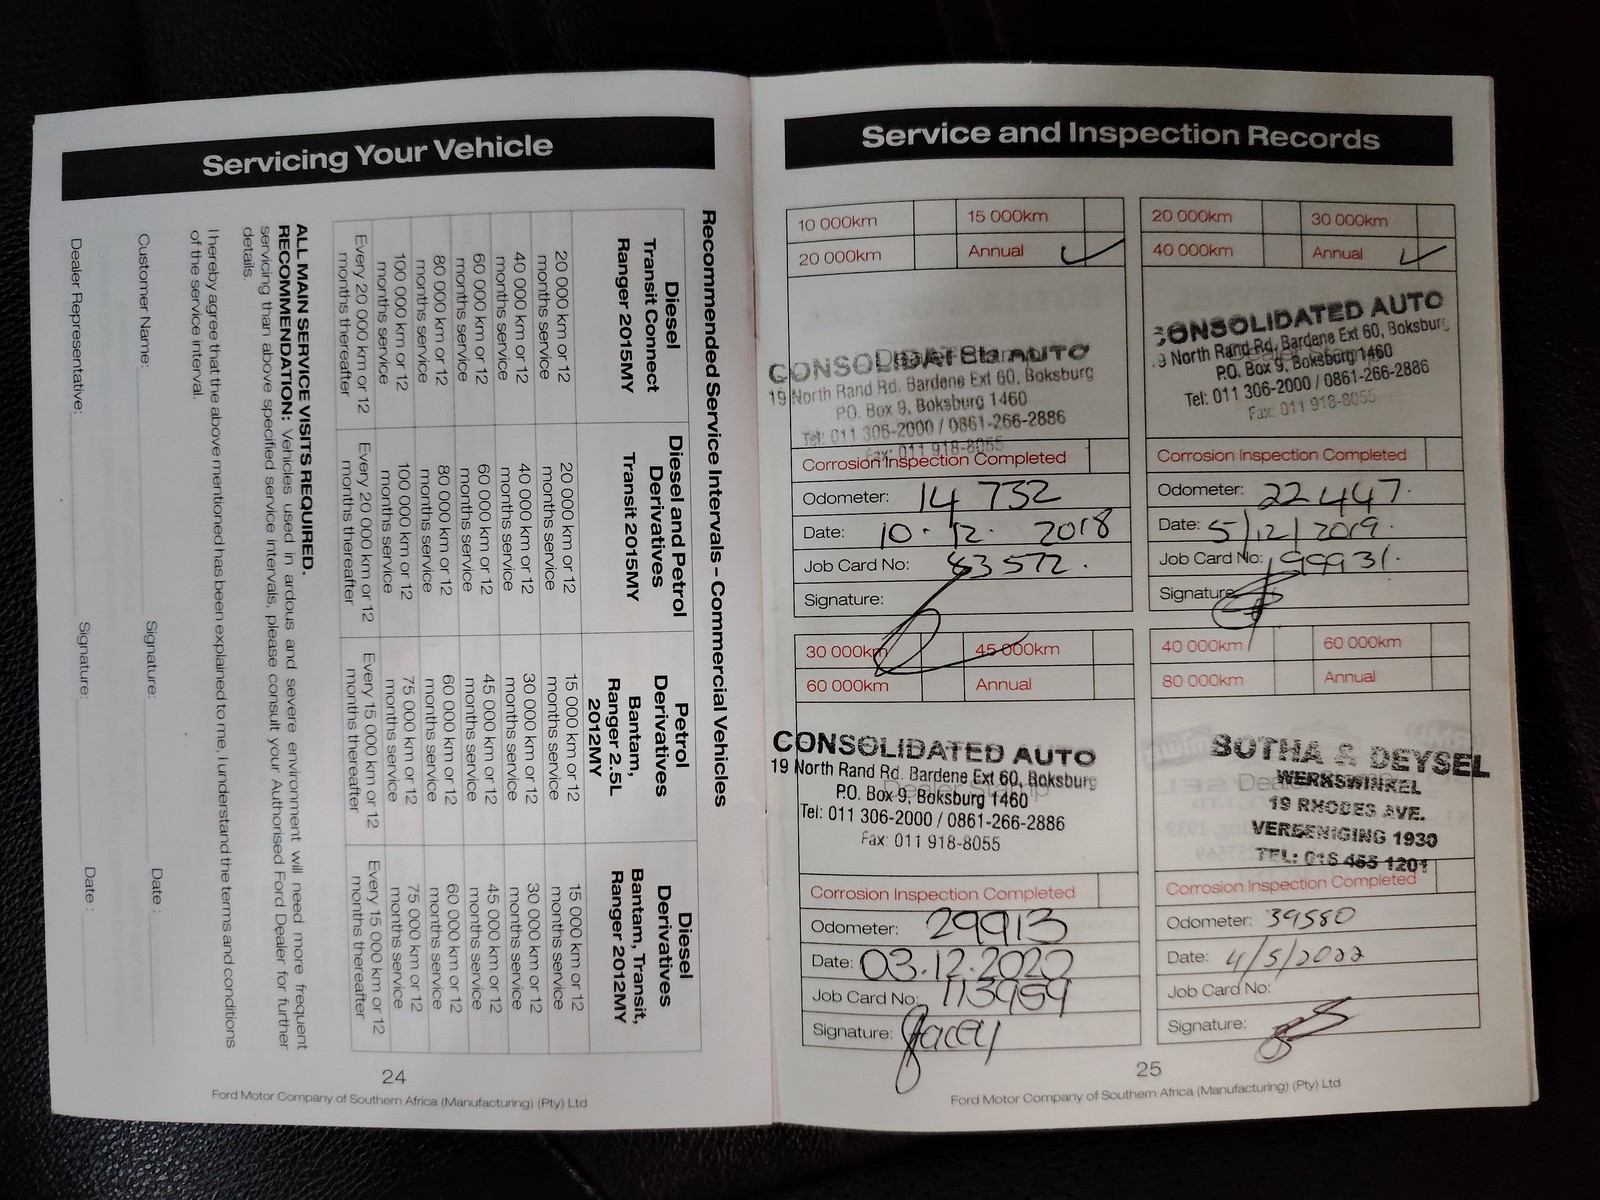 Servicing Your Vehicle
Recommended Service Intervals – Commercial Vehicles
Diesel
Transit Connect
Ranger 2015MY
20 000 km or 12
months service
40 000 km or 12
months service
60 000 km or 12
months service
80 000 km or 12
months service
100 000 km or 12
months service
Every 20 000 km or 12
months thereafter
Diesel and Petrol
Derivatives
Transit 2015MY
20 000 km or 12
months service
40 000 km or 12
months service
60 000 km or 12
months service
80 000 km or 12
months service
100 000 km or 12
months service
Every 20 000 km or 12
months thereafter
Petrol
Derivatives
Bantam,
Ranger 2.5L
2012MY
15 000 km or 12
months service
30 000 km or 12
months service
45 000 km or 12
months service
60 000 km or 12
months service
75 000 km or 12
months service
Every 15 000 km or 12
months thereafter
Diesel
Derivatives
Bantam, Transit,
Ranger 2012MY
15 000 km or 12
months service
30 000 km or 12
months service
45 000 km or 12
months service
60 000 km or 12
months service
75 000 km or 12
months service
Every 15 000 km or 12
months thereafter
ALL MAIN SERVICE VISITS REQUIRED.
RECOMMENDATION: Vehicles used in ardous and severe environment will need more frequent
servicing than above specified service intervals, please consult your Authorised Ford Dealer for further
details.
I hereby agree that the above mentioned has been explained to me, I understand the terms and conditions
of the service interval.
Customer Name: Signature: Date :
Dealer Representative: Signature: Date :
24
Ford Motor Company of Southern Africa (Manufacturing) (Pty) Ltd
Service and Inspection Records
10 000km 15 000km
20 000km Annual ✓
CONSOLIDATED AUTO
19 North Rand Rd. Bardene Ext 60, Boksburg
P.O. Box 9, Boksburg 1460
Tel: 011 306-2000 / 0861-266-2886
Fax: 011 918-8055
Corrosion Inspection Completed
Odometer: 14 732
Date: 10.12.2018
Job Card No: 83572.
Signature:
20 000km 30 000km
40 000km Annual ✓
CONSOLIDATED AUTO
9 North Rand Rd. Bardene Ext 60, Boksburg
P.O. Box 9, Boksburg 1460
Tel: 011 306-2000 / 0861-266-2886
Fax: 011 918-8055
Corrosion Inspection Completed
Odometer: 22 447.
Date: 5/12/2019.
Job Card No: 99931.
Signature:
30 000km 45 000km
60 000km Annual
CONSOLIDATED AUTO
19 North Rand Rd. Bardene Ext 60, Boksburg
P.O. Box 9, Boksburg 1460
Dealer Stamp
Tel: 011 306-2000 / 0861-266-2886
Fax: 011 918-8055
Corrosion Inspection Completed
Odometer: 29913
Date: 03.12.2020
Job Card No: 113959
Signature: Jacey
40 000km 60 000km
80 000km Annual
BOTHA & DEYSEL
WERKSWINKEL
19 RHODES AVE.
VEREENIGING 1930
TEL: 016 455 1201
Corrosion Inspection Completed
Odometer: 39580
Date: 4/5/2022
Job Card No:
Signature:
25
Ford Motor Company of Southern Africa (Manufacturing) (Pty) Ltd